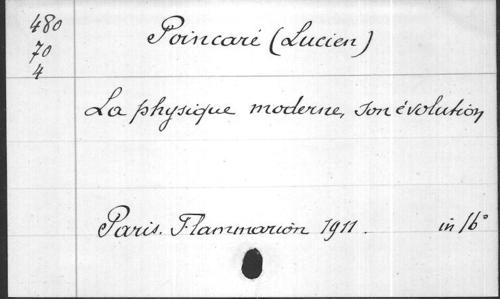 480
70
4
Poincaré (Lucien)
La physique moderne, son évolution
Paris. Flammarion 1911. in 16°